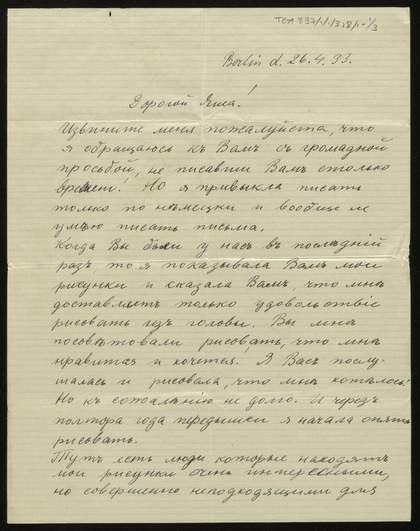 Berlin d. 26.4.33.
Дорогой Яша!
Извините меня пожалуйста, что
я обращаюсь къ Вамъ съ громадной
просьбой, не писавши Вамъ столько
времени! Но я привыкла писать
только по нѣмецки и вообще не
умѣю писать письма.
Когда Вы были у насъ въ послѣдній
разъ то я показывала Вамъ мои
рисунки и сказала Вамъ, что мнѣ
доставляетъ только удовольствіе
рисовать изъ головы. Вы мнѣ
посовѣтовали рисовать, что мнѣ
нравится и хочется. Я Васъ послу-
шалась и рисовала, что мнѣ хотѣлось!
Но къ сожалѣнію не долго. И черезъ
полтора года передышки я начала опять
рисовать.
Тутъ есть люди которые находятъ
мои рисунки очень интересными,
но совершенно неподходящими для